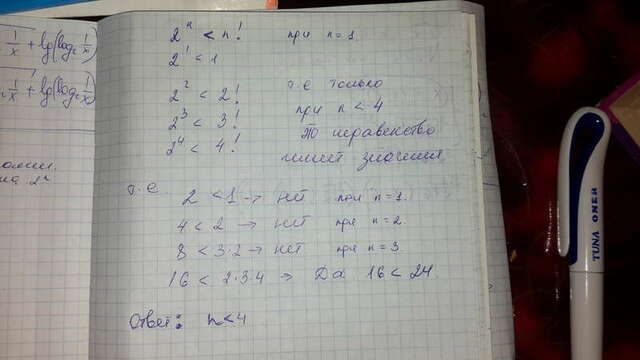 1/x + lg(log₂ 1/x)
1/x + lg(log₂ 1/x)
2ⁿ < n! при n=1
2¹ < 1
2² < 2! т.е только
2³ < 3! при n < 4
2⁴ < 4! то неравенство
имеет значения
т.е 2 < 1 → нет при n=1.
4 < 2 → нет при n=2.
8 < 3·2 → нет при n=3
16 < 2·3·4 → Да 16 < 24.
Ответ: n<4
TUNA OMER